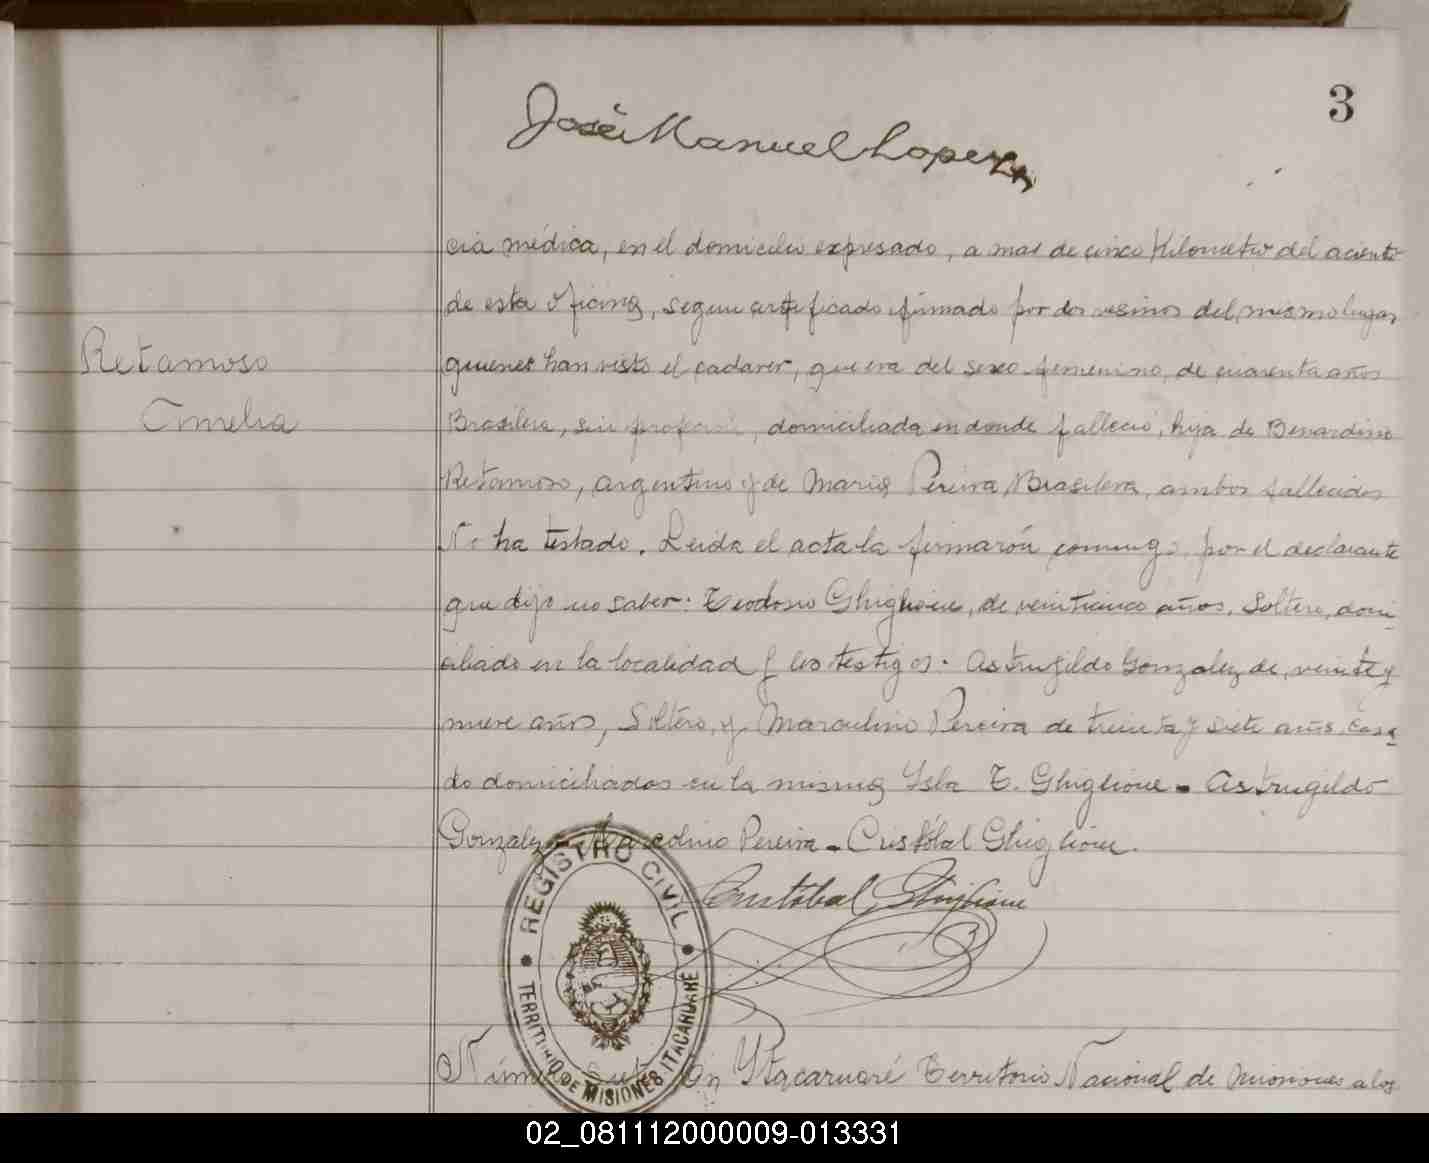 3
José Manuel Lopez
cia médica, en el domicilio expresado, a mas de cinco Kilometro del aciento
de esta oficina, segun certificado firmado por dos vesinos del mismo lugar
quienes han visto el cadaver, que era del sexo femenino, de cuarenta años
Retamoso
Amelia
Brasilera, sin profesion, domiciliada en donde fallecio, hija de Bernardino
Retamoso, argentino y de Maria Pereira, Brasilera, ambos fallecidos
No ha testado. Leida el acta la firmarón conmigo, por el declarante
que dijo no saber: Teodosio Ghiglione, de veinticinco años, Soltero, domi-
ciliado en la localidad y los testigos. Astrugildo Gonzalez de, veinte y
nueve años, Soltero, y Marculino Pereira de treinta y siete años, casa-
do domiciliados en la misma Ysla T. Ghiglione - Astrugildo
Gonzalez - Marcolino Pereira - Cristóbal Ghiglione.
Cristóbal Ghiglione
REGISTRO CIVIL
TERRITORIO DE MISIONES ITACARUARÉ
Número Siete En Ytacaruaré Territorio Nacional de Misiones a los
02_081112000009-013331